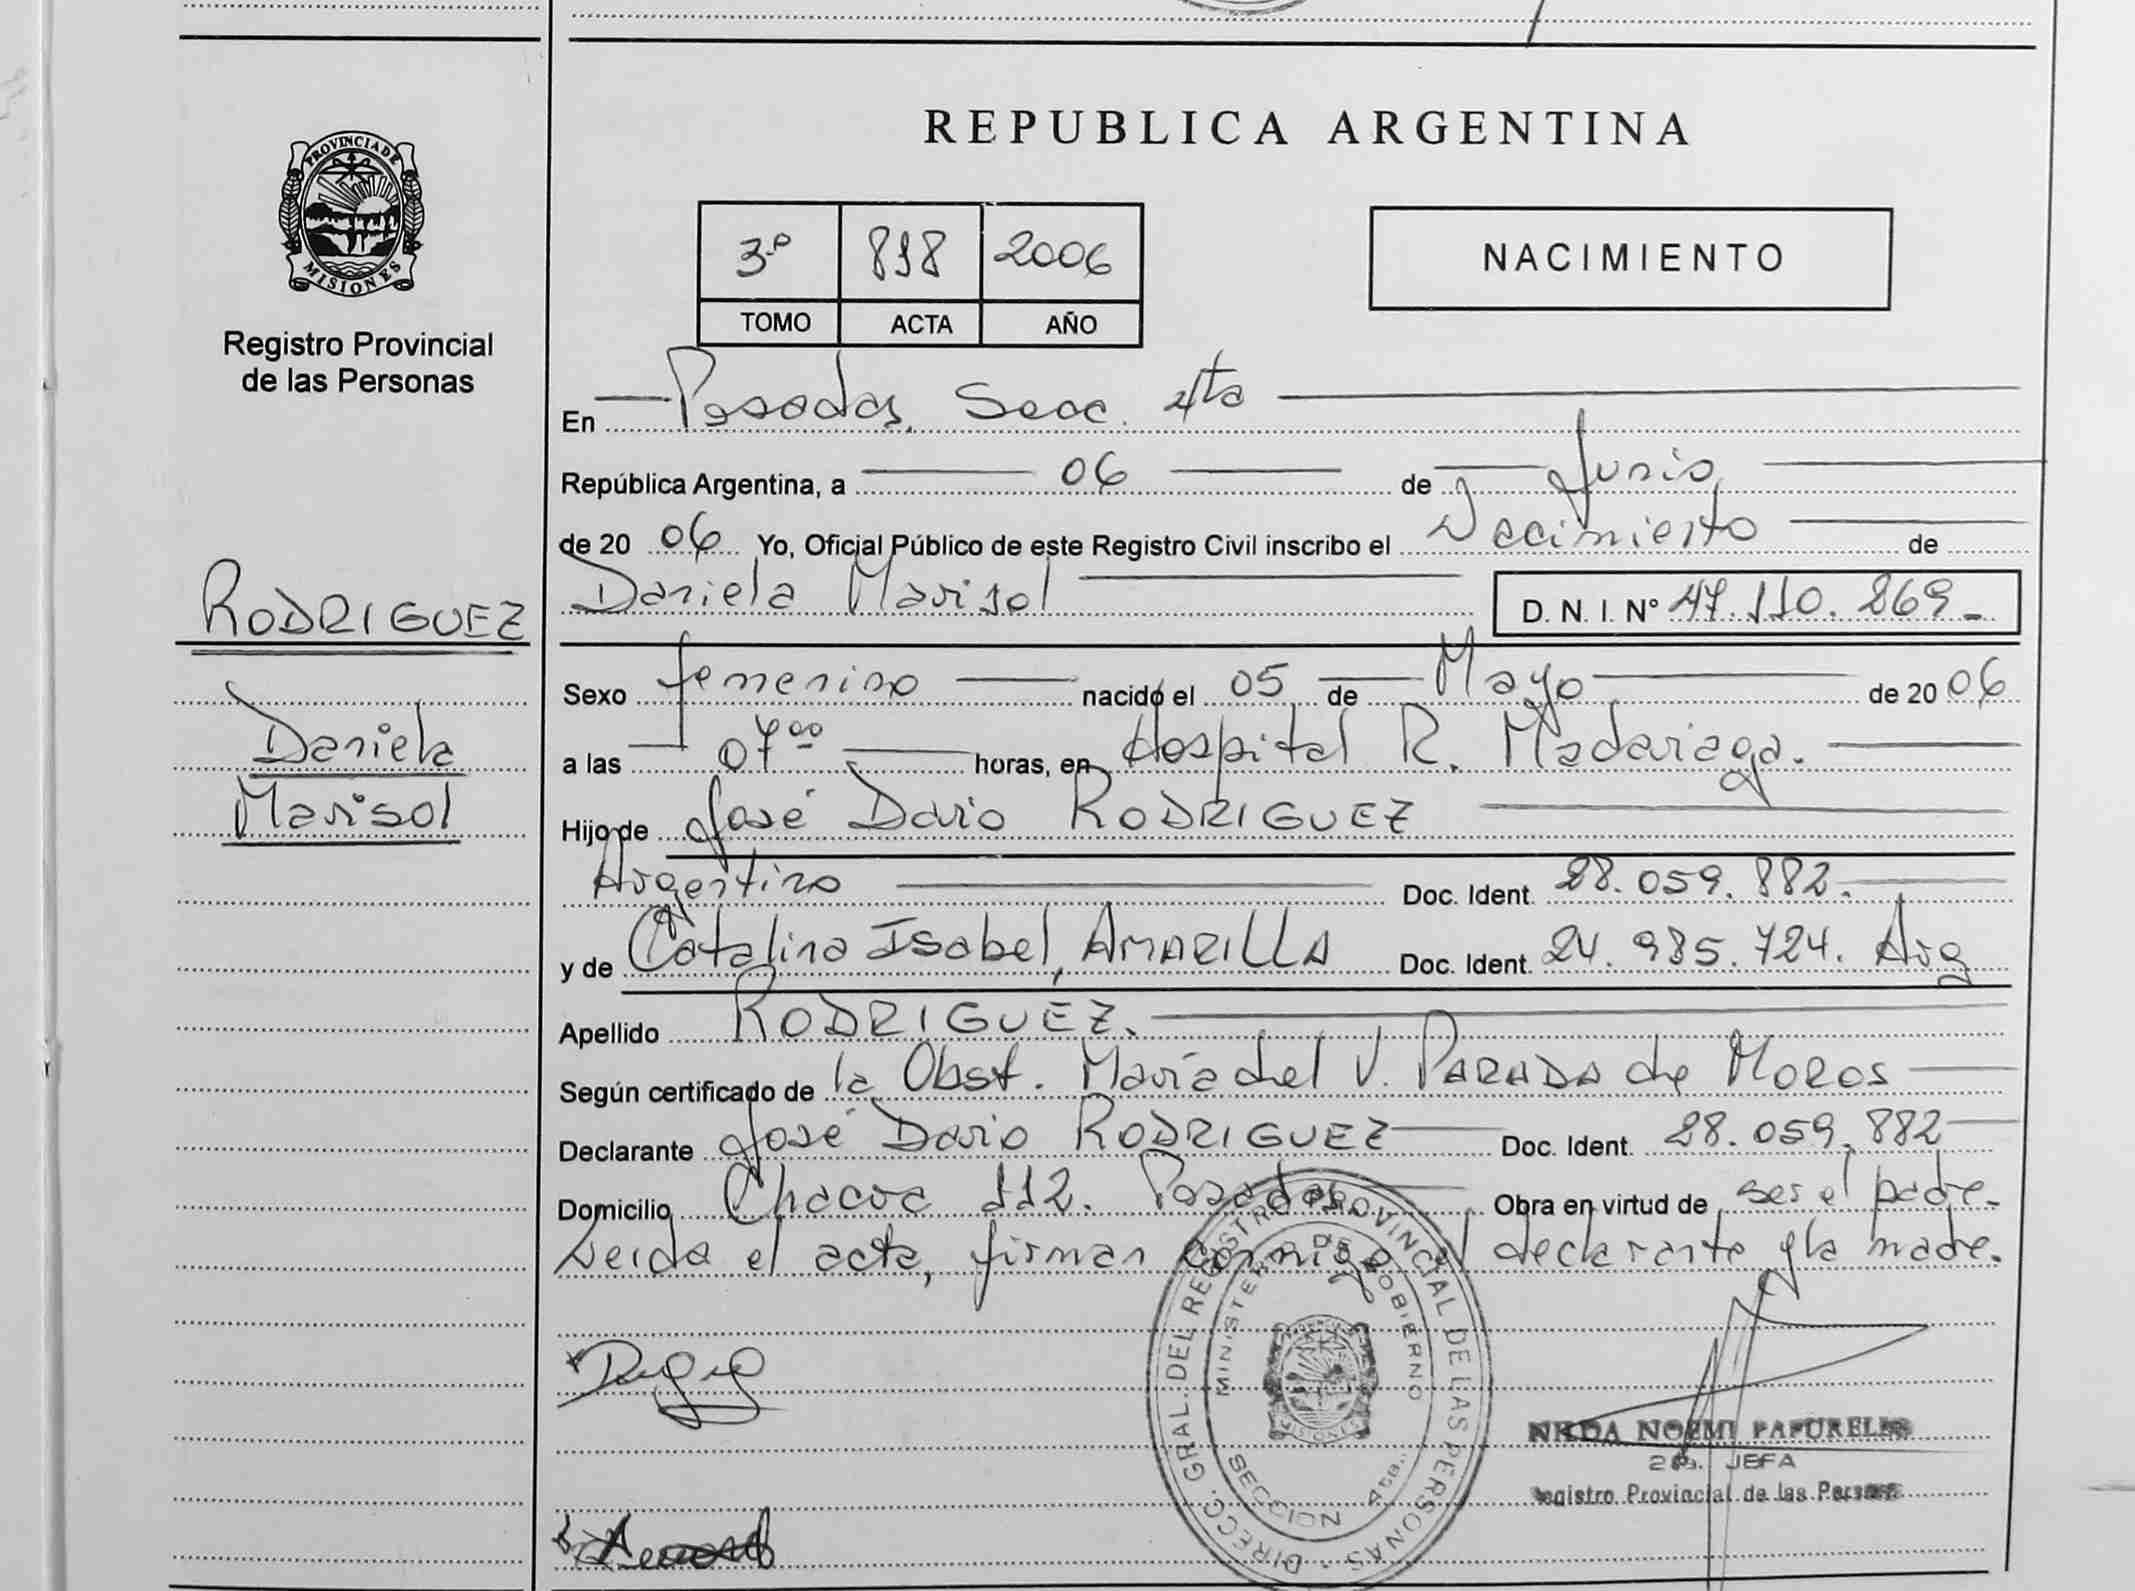 PROVINCIA DE
MISIONES
Registro Provincial
de las Personas
RODRIGUEZ
Daniela
Marisol
REPUBLICA ARGENTINA
3º 818 2006
TOMO ACTA AÑO
NACIMIENTO
En Posadas, Secc. 4ta
República Argentina, a 06 de Junio,
de 20 06 Yo, Oficial Público de este Registro Civil inscribo el Nacimiento de
Daniela Marisol D. N. I. Nº 47.110.269.-
Sexo femenino nacido el 05 de Mayo de 20 06
a las 07⁰⁰ horas, en Hospital R. Madariaga.
Hijo de José Dario RODRIGUEZ
Argentino Doc. Ident. 28.059.882.
y de Catalina Isabel, AMARILLA Doc. Ident. 24.985.724. Arg
Apellido RODRIGUEZ.
Según certificado de la Obst. María del V. PARADA de MOROS
Declarante José Dario RODRIGUEZ Doc. Ident. 28.059.882
Domicilio Chacra 112. Posadas. Obra en virtud de ser el padre.
Leida el acta, firman conmigo el declarante y la madre.
DIRECC. GRAL. DEL REGISTRO PROVINCIAL DE LAS PERSONAS
MINISTERIO DE GOBIERNO
SECCION 4ta.
NILDA NOEMI
2da. JEFA
Registro Provincial de las Personas